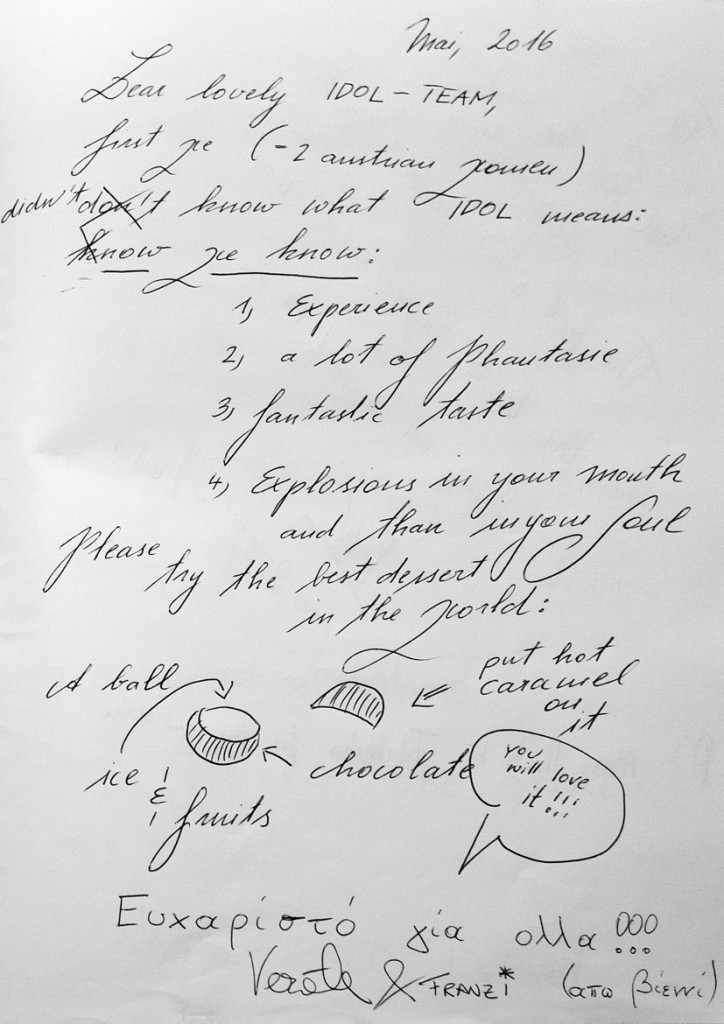 Mai, 2016
Dear lovely IDOL-TEAM,
first we (-2 austrian women)
didn't don't know what IDOL means:
know we know:
1, Experience
2, a lot of Phantasie
3, fantastic taste
4, Explosions in your mouth
and than in your Soul
Please try the best dessert
in the world:
A ball
ice & fruits
chocolate
put hot
caramel
on
it
you
will love
it!!!
Ευχαρίστό γία ολλα!!!
& FRANZI* (απω βίεννί)